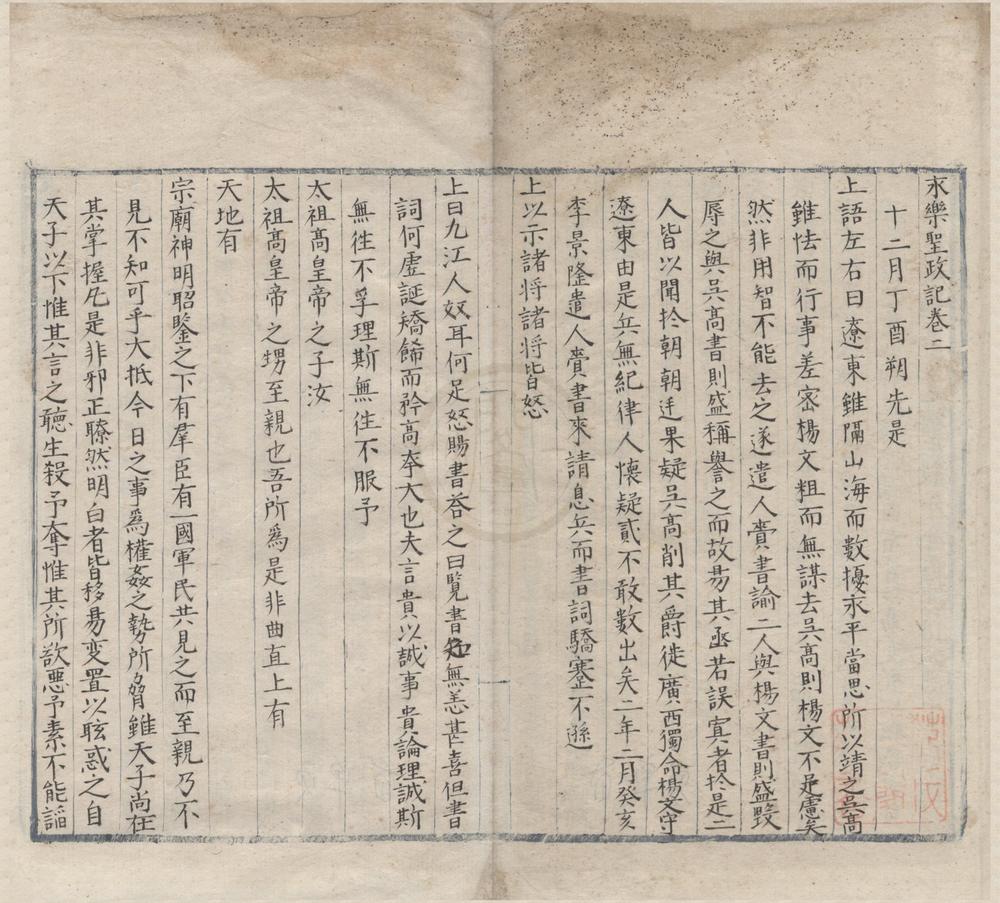 永樂聖政記卷二
十二月丁酉朔先是
上語左右曰遼東雖隔山海而數擾永平當思所以靖之吳高
雖怯而行事差密楊文粗而無謀去吳高則楊文不足慮矣
然非用智不能去之遂遣人賫書諭二人與楊文書則盛毀
辱之與吳高書則盛稱譽之而故昜其函若誤寘者於是二
人皆以聞於朝朝廷果疑吳高削其爵徙廣西獨命楊文守
遼東由是兵無紀律人懷疑貳不敢數出矣二年二月癸亥
李景隆遣人賫書來請息兵而書詞驕蹇不遜
上以示諸將諸將皆怒
上曰九江人奴耳何足怒賜書荅之曰覽書知無恙甚喜但書
詞何虛誕矯餙而矜高夲大也夫言貴以誠事貴論理誠斯
無徃不孚理斯無徃不服予
太祖高皇帝之子汝
太祖高皇帝之甥至親也吾所爲是非曲直上有
天地有
宗廟神明昭鑒之下有羣臣有一國軍民共見之而至親乃不
見不知可乎大抵今日之事爲權姦之勢所脅雖天子尚在
其掌握凡是非邪正瞭然明白者皆移昜变置以眩惑之自
天子以下惟其言之聽生殺予奪惟其所欲惡予素不能謟